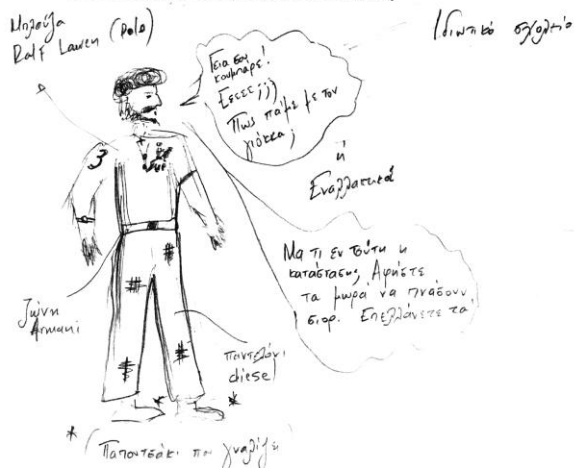 Μπλούζα
Ralf Lauren (Polo)
Ιδιωτικό σχολείο
Γεια σου
κουμπάρε!
Εσεεε;;;)
Πως πάμε με τον
γιόκκα;
ή
Εναλλακτικά
Μα τι εν τούτη η
κατάσταση; Αφήστε
τα μωρά να πνάσουν
σιορ. Επελλάνετε τα
Ζώνη
Armani
παντελόνι
diesel
*
* Παπουτσάκι που γυαλίζει